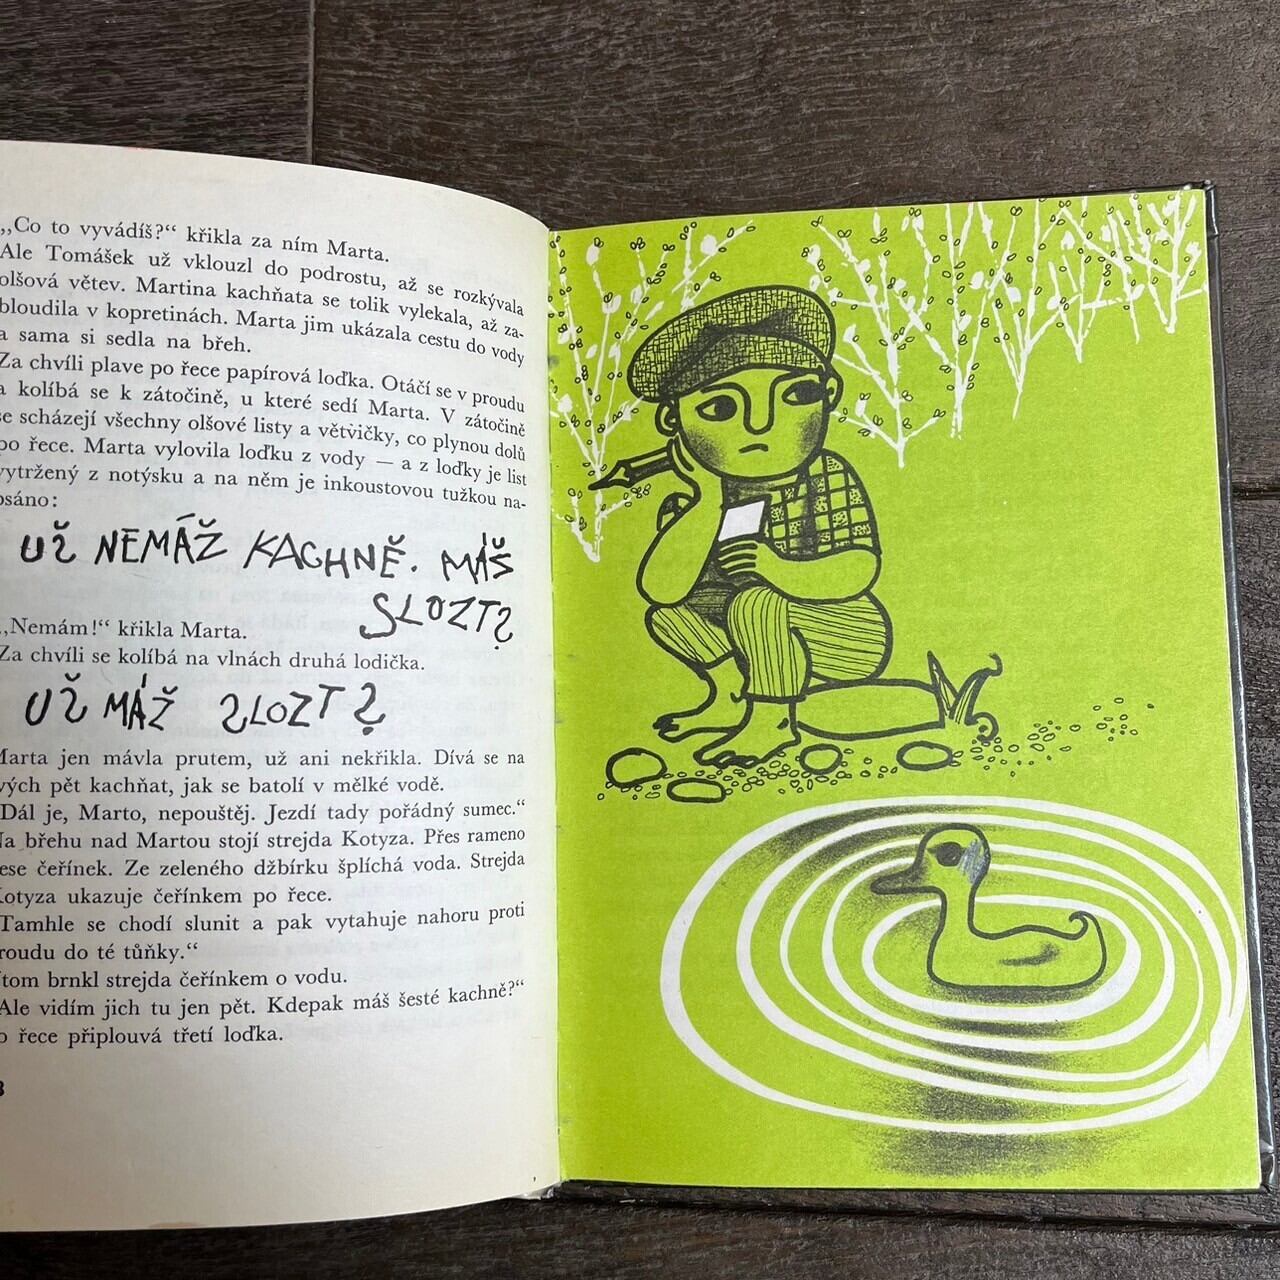 „Co to vyvádíš?“ křikla za ním Marta.
Ale Tomášek už vklouzl do podrostu, až se rozkývala
olšová větev. Martina kachňata se tolik vylekala, až za-
bloudila v kopretinách. Marta jim ukázala cestu do vody
a sama si sedla na břeh.
Za chvíli plave po řece papírová loďka. Otáčí se v proudu
a kolíbá se k zátočině, u které sedí Marta. V zátočině
se scházejí všechny olšové listy a větvičky, co plynou dolů
po řece. Marta vylovila loďku z vody — a z loďky je list
vytržený z notýsku a na něm je inkoustovou tužkou na-
psáno:
UŽ NEMÁŽ KACHNĚ. MÁŠ
SLOZT?
„Nemám!“ křikla Marta.
Za chvíli se kolíbá na vlnách druhá lodička.
UŽ MÁŽ SLOZT?
Marta jen mávla prutem, už ani nekřikla. Dívá se na
svých pět kachňat, jak se batolí v mělké vodě.
„Dál je, Marto, nepouštěj. Jezdí tady pořádný sumec.“
Na břehu nad Martou stojí strejda Kotyza. Přes rameno
nese čeřínek. Ze zeleného džbírku šplíchá voda. Strejda
Kotyza ukazuje čeřínkem po řece.
„Tamhle se chodí slunit a pak vytahuje nahoru proti
proudu do té tůňky.“
brnkl strejda čeřínkem o vodu.
„Ale vidím jich tu jen pět. Kdepak máš šesté kachně?“
Po řece připlouvá třetí loďka.